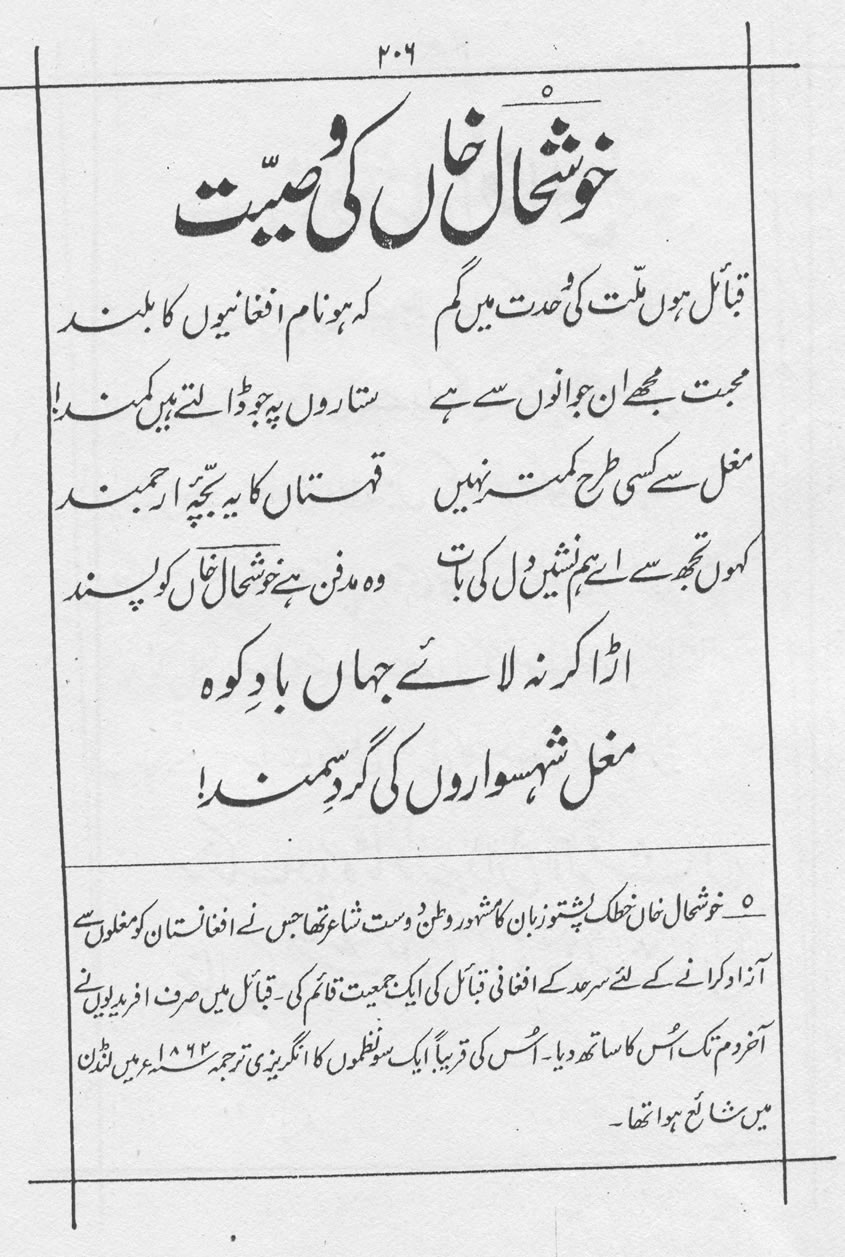 ۲۰۶
خوشحال خاں کی وصیّت
قبائل ہوں ملّت کی وحدت میں گم کہ ہو نام افغانیوں کا بلند
محبت مجھے ان جوانوں سے ہے ستاروں پہ جو ڈالتے ہیں کمند!
مغل سے کسی طرح کمتر نہیں قہستاں کا یہ بچّۂ ارجمند
کہوں تجھ سے اے ہم نشیں دل کی بات وہ مدفن ہے خوشحال خاں کو پسند
اڑا کر نہ لائے جہاں بادِ کوہ
مغل شہسواروں کی گردِ سمند!
ہ خوشحال خاں خٹک پشتو زبان کا مشہور وطن دوست شاعر تھا جس نے افغانستان کو مغلوں سے
آزاد کرانے کے لئے سرحد کے افغانی قبائل کی ایک جمعیت قائم کی۔ قبائل میں صرف افریدیوں نے
آخر دم تک اُس کا ساتھ دیا۔ اُس کی قریباً ایک سو نظموں کا انگریزی ترجمہ ۱۸۶۲ء میں لنڈن
میں شائع ہوا تھا۔